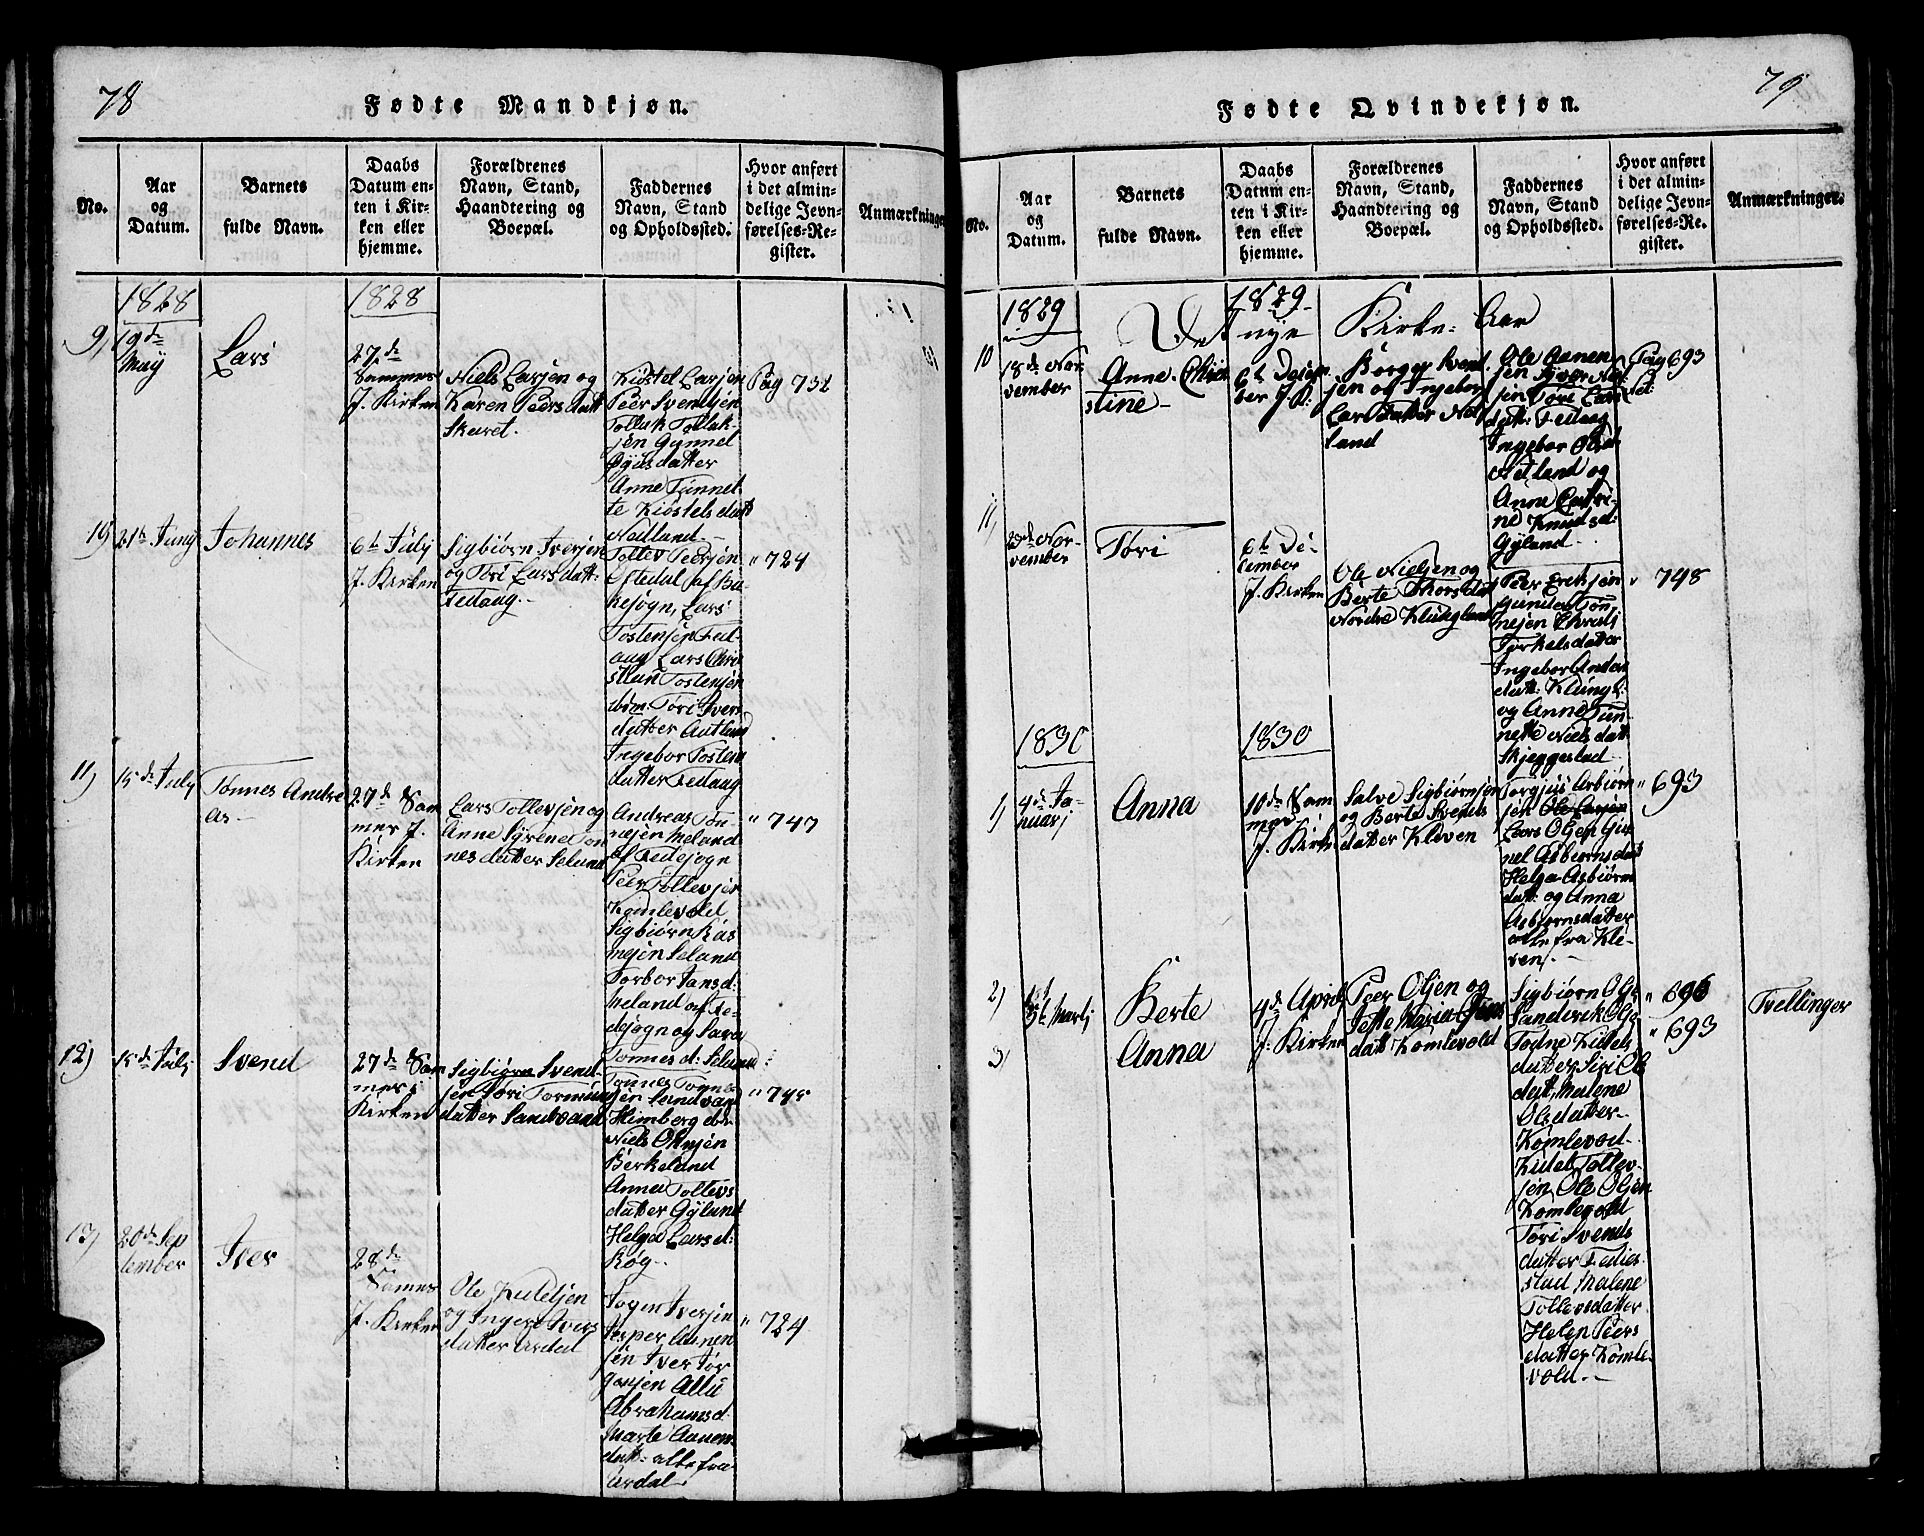 78
Fødte Mandkjøn.
No.
Aar
og
Datum.
Barnets
fulde Navn.
Daabs
Datum en-
ten i Kir-
ken eller
hjemme.
Forældrenes
Navn, Stand,
Haandtering og
Boepæl.
Faddernes
Navn, Stand
og Opholdssted.
Hvor anført
i det almin-
delige Jevn-
førelses-Re-
gister.
Anmærkninger
1828
1828
9)
19de
May
Lars
27de
Sammes
J. Kirken
Niels Larsen og
Karen Peers datt
Skaret.
Kidtel Larsen
Peer Svendsen
Tollak Tollak-
sen Gunnel
datter
Anne Tønnet-
te Kiøstels datt
Nedland.
Pag 731
10)
21de Juny
Johannes
6te July
J. Kirken
Sigbiørn Iversen
og Tøri Lars datt:
Fedaag.
Tollev Peersen
Oftedal af Ba-
kesogn, Lars
Tostensen Fed-
aag Lars Chri-
stian Tostensen
ibdm: Tøri Ivers
datter Aatland
Ingebor Tostens
datter Fedaag
" 724
11)
15de July
Tønnes Andre
as
27de Sam
mes J.
Kirken
Lars Tollevsen og
Anne Syrene Ton
nes datter Selund
Andreas Tøn-
nesen Meland
af Fedesogn
Peer Tollevsen
Komlevold
Sigbiørn Ras
mesen Seland
Torbor Jans d:
Meland af Fe-
desogn og Sara
Tonnes d: Selund
" 747
12)
15de July
Svend
27de Sam
mes i
Kirken
Sigbiørn Svend-
sen Tøri Tormun
datter Sandvand
Tønnes Tønne-
sen Sandvand
Himberg
Niels
Birkeland
Anna Tollevs
datter Gyland
Helga Lars d:
Røg
" 745
13)
20de Sep
tember
Iver
28de
Sammes
J. Kirken
Ole Kidelsen
og Inger Ivers
datter Ardal
Jørgen Iversen
Jesper Aanen
sen Iver Jør
gensen
Abrahams d.
Marte Aanen
datt: alle fra
Ardal
" 724
79
Fødte Qvindekjøn.
No.
Aar
og
Datum.
Barnets
fulde Navn.
Daabs
Datum en-
ten i Kir-
ken eller
hjemme.
Forældrenes
Navn, Stand,
Haandtering og
Boepæl.
Faddernes
Navn, Stand
og Opholdssted.
Hvor anført
i det almin-
delige Jevn-
førelses-Re-
gister.
Anmærkninger.
1829
1829
Det nye Kirke-Aar
10
18de No-
vember
Anne Chri-
stine
6te Decem
ber J. K:
Børge Svend
sen og Ingebor
Lars datter Net
land
Ole Aanen
sen Iver
sen Tøri Lars
datt: Fedaag
Ingebor Ols d
Netland og
Anne Catri-
ne Knuds d:
Gyland
Pag 693
11)
No-
vember
Tøri
6te De-
cember
J. Kirken
Ole Nielsen og
Berte Thors datt
Nordre Klungland
Peer Eriksen
Gunder Tøn
nesen
Torkelsdatter
Ingebor Anders
datt: Klungl:
og Anne Tøn-
nette Niels datt
Skjeggestad
" 748
1830
1830
1)
4de Ja-
nuarj
Anna
10de Sam
mes
J. Kirk
Salve Sigbiørnsen
og Berte Svends
datter Kleven
Torgius Asbiørn
sen Ole Larsen
Lars Olsen Gun
nel Asbiørnsdatt
Helga Asbiørns
datt: og Anna
Asbiørnsdatter
alle fra Kle-
ven/.
" 693
2)
Martj
Berte
4de April
J. Kirken
Peer Olsen og
Jette Maria
datt Komlevold
Sigbiørn Ols
Sandvik
Todne Kidels
datter Siri Ols
datt, Malene
Olsdatter
Komlevold
Kidel Tollev-
sen Ole Olsen
Komlevold
Tøri Svends
datter
stad Malene
Tollevsdatter
Helen Peers
datter Komle-
vold.
" 696
Tvellinger
3)
Anna
" 693